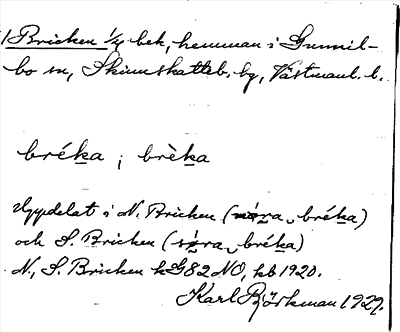 1 Bricken 1/4 bek, hemman i Gunnil-
bo sn, Skinnskatteb. bg, Västmanl. l.
bréka ; brèka
Uppdelat i N. Bricken (nó̱ra bréka)
och S. Bricken (só̱ra bréka)
N., S. Bricken kG82NO, kb 1920.
Karl Björkman 1929.